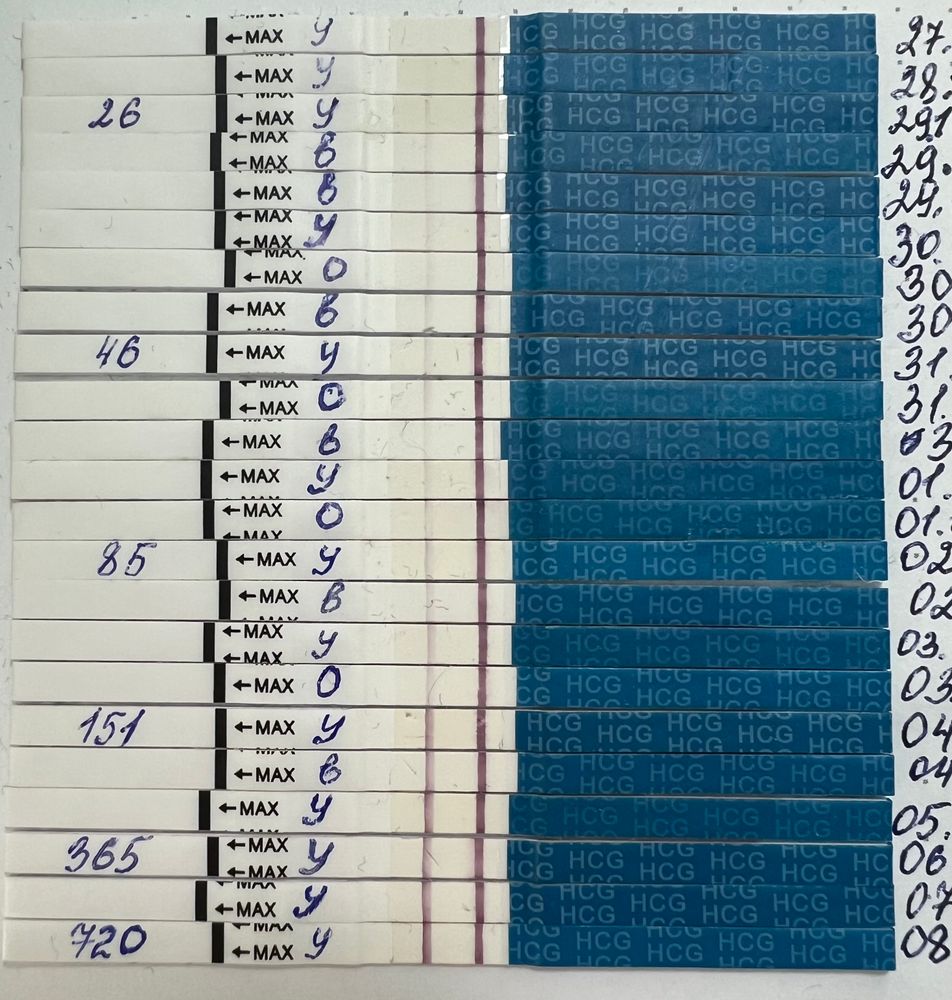 ←MAX У HCG HCG HCG HCG 27.
←MAX У HCG HCG HCG 28.
26 ←MAX У HCG HCG HCG 29.1
←MAX В HCG HCG HCG 29.
←MAX В HCG HCG HCG 29.
←MAX У HCG HCG HCG 30.
←MAX О HCG HCG HCG 30
←MAX В HCG HCG HCG 30
46 ←MAX У HCG HCG HCG 31.
←MAX О HCG HCG HCG 31.
←MAX В HCG HCG HCG
←MAX У HCG HCG HCG 01.
←MAX О HCG HCG HCG 01.
85 ←MAX У HCG HCG HCG 02
←MAX В HCG HCG HCG 02
←MAX У HCG HCG HCG 03.
←MAX О HCG HCG HCG 03
151 ←MAX У HCG HCG HCG 04
←MAX В HCG HCG HCG 04
←MAX У HCG HCG HCG 05.
365 ←MAX У HCG HCG HCG 06
←MAX У HCG HCG HCG 07
720 ←MAX У HCG HCG HCG 08